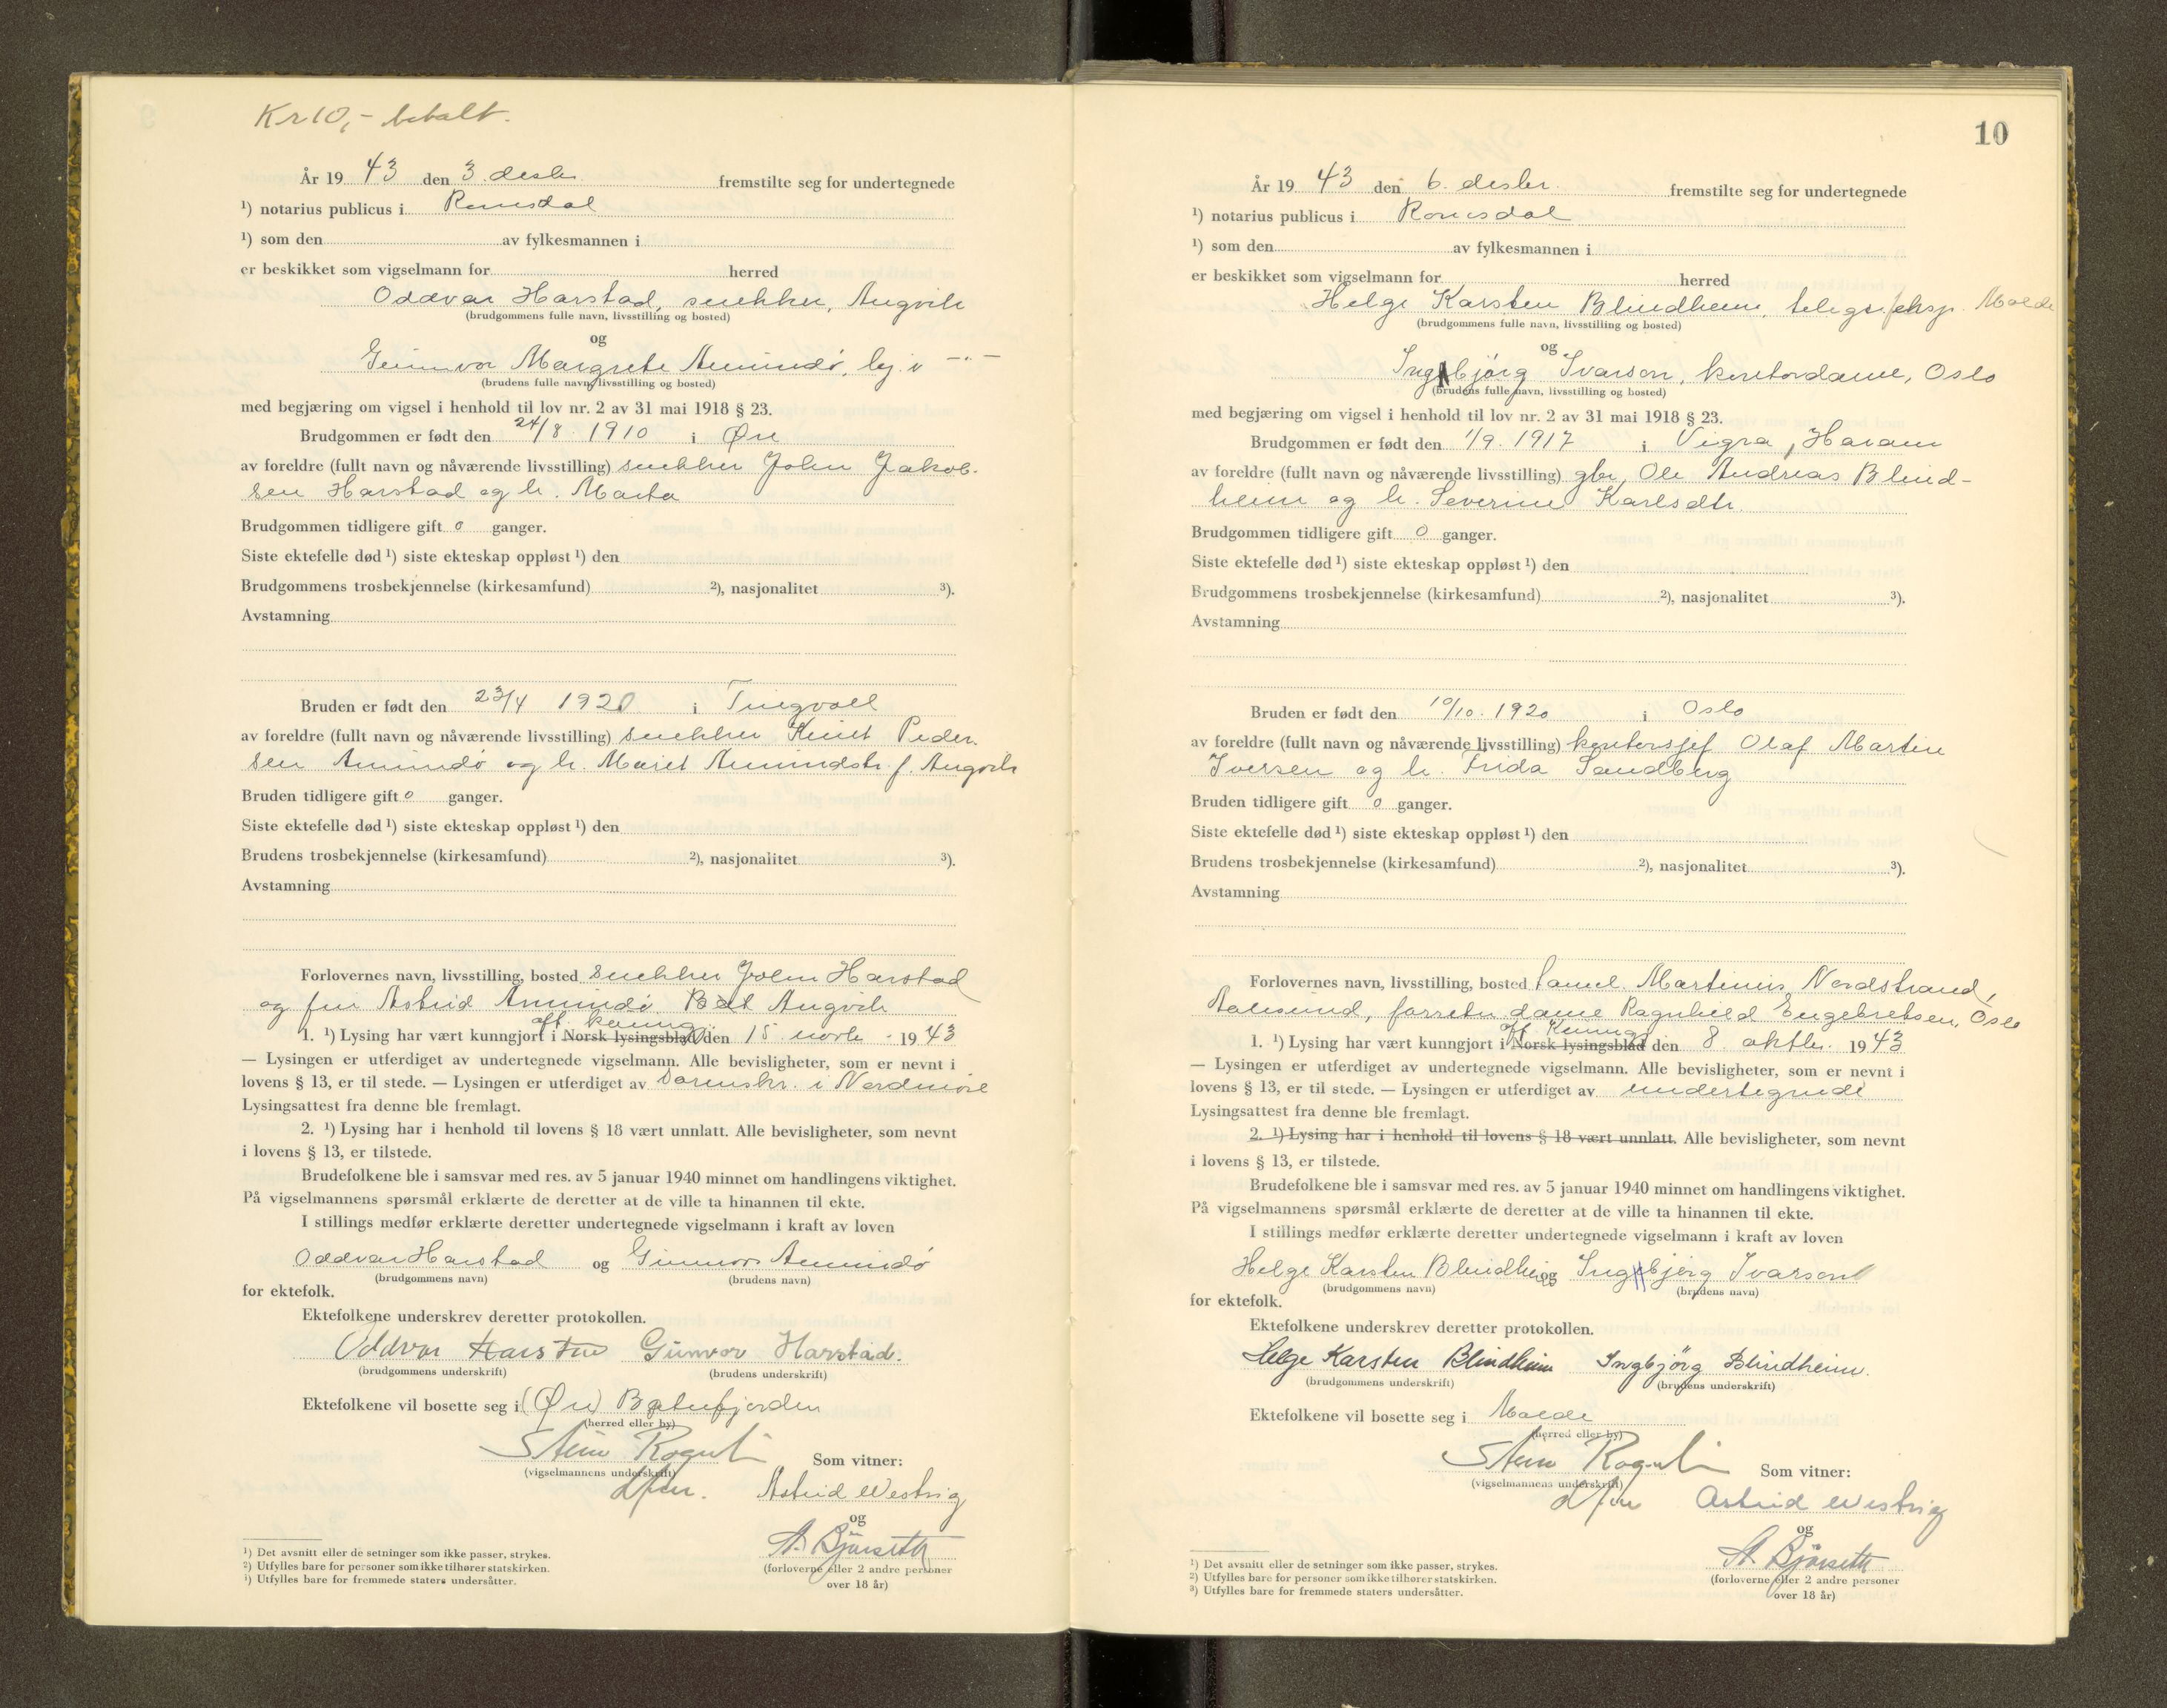 Kr 10,- betalt.
År 19 43 den 3. desbr. fremstilte seg for undertegnede
¹) notarius publicus i Romsdal
¹) som den av fylkesmannen i
er beskikket som vigselmann for herred
Oddvar Harstad, snekker, Angvik
(brudgommens fulle navn, livsstilling og bosted)
og
Gunnvor Margrete Amundø, l.j. i —"—
(brudens fulle navn, livsstilling og bosted)
med begjæring om vigsel i henhold til lov nr. 2 av 31 mai 1918 § 23.
Brudgommen er født den 24/8. 1910 i Øre
av foreldre (fullt navn og nåværende livsstilling) snekker John Jakob-
sen Harstad og h. Marta
Brudgommen tidligere gift 0 ganger.
Siste ektefelle død ¹) siste ekteskap oppløst ¹) den
Brudgommens trosbekjennelse (kirkesamfund) ²), nasjonalitet ³).
Avstamning
Bruden er født den 23/4 1920 i Tingvoll
av foreldre (fullt navn og nåværende livsstilling) snekker Knut Peder-
sen Amundø og h. Marit Amundstr. f. Angvik
Bruden tidligere gift 0 ganger.
Siste ektefelle død ¹) siste ekteskap oppløst ¹) den
Brudens trosbekjennelse (kirkesamfund) ²), nasjonalitet ³).
Avstamning
Forlovernes navn, livsstilling, bosted snekker John Harstad
og fru Astrid Amundø Angvik
aft. kunng
1. ¹) Lysing har vært kunngjort i Norsk lysingsblad den 15 novbr. 19 43
— Lysingen er utferdiget av undertegnede vigselmann. Alle bevisligheter, som er nevnt i
lovens § 13, er til stede. — Lysingen er utferdiget av Sorenskr. i Nordmøre
Lysingsattest fra denne ble fremlagt.
2. ¹) Lysing har i henhold til lovens § 18 vært unnlatt. Alle bevisligheter, som nevnt
i lovens § 13, er tilstede.
Brudefolkene ble i samsvar med res. av 5 januar 1940 minnet om handlingens viktighet.
På vigselmannens spørsmål erklærte de deretter at de ville ta hinannen til ekte.
I stillings medfør erklærte deretter undertegnede vigselmann i kraft av loven
Oddvar Harstad og Gunnvor Amundø
(brudgommens navn) (brudens navn)
for ektefolk.
Ektefolkene underskrev deretter protokollen.
Oddvar Harstad Gunvor Harstad.
(brudgommens underskrift) (brudens underskrift)
Ektefolkene vil bosette seg i (Øre) Batnfjorden
(herred eller by)
Stein Rognli Som vitner:
(vigselmannens underskrift)
dfm. Astrid Westvig
og
A. Bjørseth
(forloverne eller 2 andre personer
over 18 år)
¹) Det avsnitt eller de setninger som ikke passer, strykes.
²) Utfylles bare for personer som ikke tilhører statskirken.
³) Utfylles bare for fremmede staters undersåtter.
10
År 19 43 den 6. desbr. fremstilte seg for undertegnede
¹) notarius publicus i Romsdal
¹) som den av fylkesmannen i
er beskikket som vigselmann for herred
Helge Karsten Blindheim, telegr.eksp. Molde
(brudgommens fulle navn, livsstilling og bosted)
og
Ingbjörg Ivarson, kontordame, Oslo
(brudens fulle navn, livsstilling og bosted)
med begjæring om vigsel i henhold til lov nr. 2 av 31 mai 1918 § 23.
Brudgommen er født den 1/9. 1917 i Vigra, Haram
av foreldre (fullt navn og nåværende livsstilling) gbr. Ole Andreas Blind-
heim og h. Severine Karlsdtr.
Brudgommen tidligere gift 0 ganger.
Siste ektefelle død ¹) siste ekteskap oppløst ¹) den
Brudgommens trosbekjennelse (kirkesamfund) ²), nasjonalitet ³).
Avstamning
Bruden er født den 10/10. 1920 i Oslo
av foreldre (fullt navn og nåværende livsstilling) kontorsjef Olaf Martin
Iversen og h. Frida Sandberg
Bruden tidligere gift 0 ganger.
Siste ektefelle død ¹) siste ekteskap oppløst ¹) den
Brudens trosbekjennelse (kirkesamfund) ²), nasjonalitet ³).
Avstamning
Forlovernes navn, livsstilling, bosted Martinus Nordstrand,
Aalesund, forretn.dame Ragnhild Engebretsen, Oslo
aft. kunng
1. ¹) Lysing har vært kunngjort i Norsk lysingsblad den 8. oktbr. 19 43
— Lysingen er utferdiget av undertegnede vigselmann. Alle bevisligheter, som er nevnt i
lovens § 13, er til stede. — Lysingen er utferdiget av undertegnede
Lysingsattest fra denne ble fremlagt.
2. ¹) Lysing har i henhold til lovens § 18 vært unnlatt. Alle bevisligheter, som nevnt
i lovens § 13, er tilstede.
Brudefolkene ble i samsvar med res. av 5 januar 1940 minnet om handlingens viktighet.
På vigselmannens spørsmål erklærte de deretter at de ville ta hinannen til ekte.
I stillings medfør erklærte deretter undertegnede vigselmann i kraft av loven
Helge Karsten Blindheim og Ingbjørg Ivarson
(brudgommens navn) (brudens navn)
for ektefolk.
Ektefolkene underskrev deretter protokollen.
Helge Karsten Blindheim Ingbjörg Blindheim.
(brudgommens underskrift) (brudens underskrift)
Ektefolkene vil bosette seg i Molde
(herred eller by)
Stein Rognli Som vitner:
(vigselmannens underskrift)
dfm Astrid Westvig
og
A. Bjørseth
(forloverne eller 2 andre personer
over 18 år)
¹) Det avsnitt eller de setninger som ikke passer, strykes.
²) Utfylles bare for personer som ikke tilhører statskirken.
³) Utfylles bare for fremmede staters undersåtter.